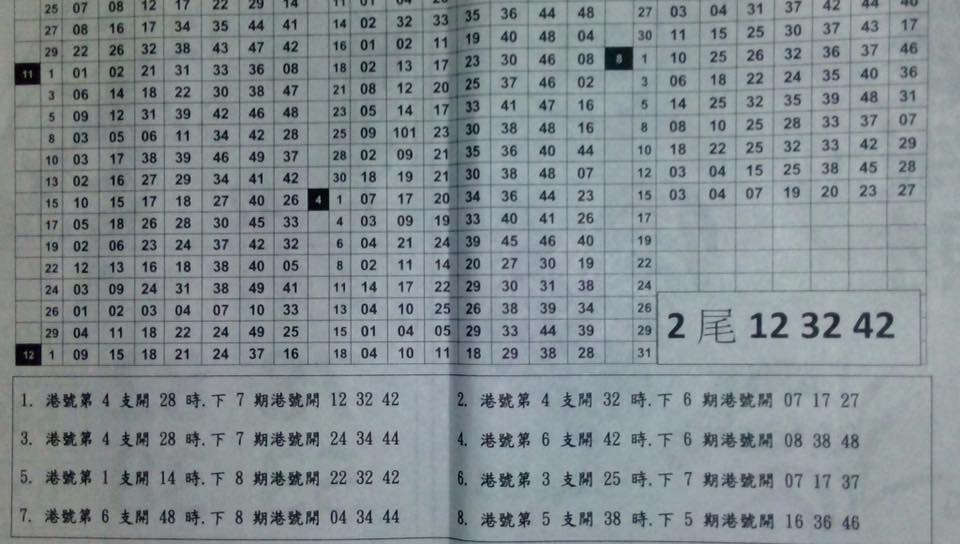 25 07 08 12 17 22 29 14
27 08 16 17 34 35 44 41
29 22 26 32 38 43 47 42
11 1 01 02 21 31 33 36 08
3 06 14 18 22 30 38 47
5 09 12 31 39 42 46 48
8 03 05 06 11 34 42 28
10 03 17 38 39 46 49 37
13 02 16 27 29 34 41 42
15 10 15 17 18 27 40 26
17 05 18 26 28 30 45 33
19 02 06 23 24 37 42 32
22 12 13 16 18 38 40 05
24 03 09 24 31 38 49 41
26 01 02 03 04 07 10 33
29 04 11 18 22 24 49 25
12 1 09 15 18 21 24 37 16
11 01 04
14 02 32 33 35 36 44 48
16 01 02 11 19 40 48 04
18 02 13 17 23 30 46 08
21 08 12 20 25 37 46 02
23 05 14 17 33 41 47 16
25 09 101 23 30 38 48 16
28 02 09 21 35 36 40 44
30 18 19 21 30 38 48 07
4 1 07 17 20 34 36 44 23
4 03 09 19 33 40 41 26
6 04 21 24 39 45 46 40
8 02 11 14 20 27 30 19
11 14 17 22 29 30 31 38
13 04 10 25 26 38 39 34
15 01 04 05 29 33 44 39
18 04 10 11 18 29 38 28
27 03 04 31 37 42 44
30 11 15 25 30 37 43 17
8 1 10 25 26 32 36 37 46
3 06 18 22 24 35 40 36
5 14 25 32 35 39 48 31
8 08 10 25 28 33 37 07
10 18 22 25 32 33 42 29
12 03 04 15 25 38 45 28
15 03 04 07 19 20 23 27
17
19
22
24
26
29
31
2 尾 12 32 42
1. 港號第 4 支開 28 時.下 7 期港號開 12 32 42
2. 港號第 4 支開 32 時.下 6 期港號開 07 17 27
3. 港號第 4 支開 28 時.下 7 期港號開 24 34 44
4. 港號第 6 支開 42 時.下 6 期港號開 08 38 48
5. 港號第 1 支開 14 時.下 8 期港號開 22 32 42
6. 港號第 3 支開 25 時.下 7 期港號開 07 17 37
7. 港號第 6 支開 48 時.下 8 期港號開 04 34 44
8. 港號第 5 支開 38 時.下 5 期港號開 16 36 46